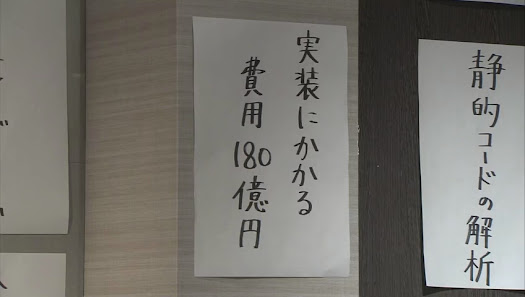 静的コードの解析
実装にかかる
費用180億円